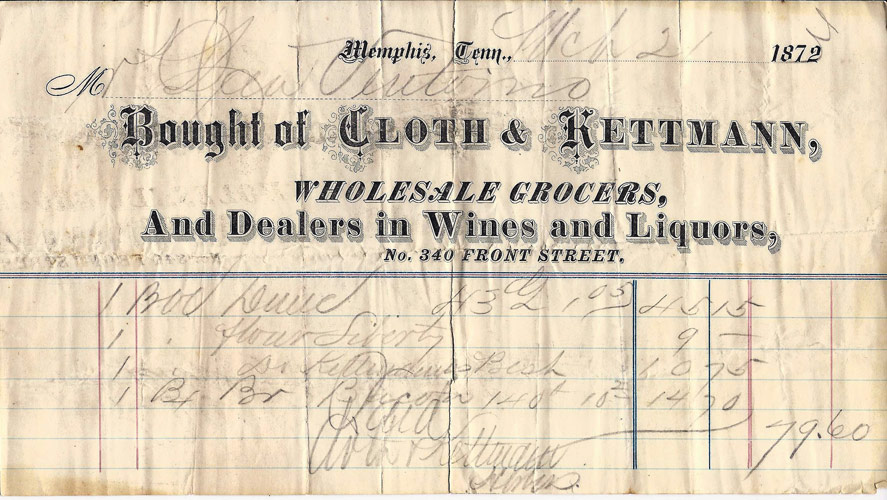 Memphis, Tenn., Mch 21 1872 4
Mr Dav
Bought of CLOTH & KETTMANN,
WHOLESALE GROCERS,
And Dealers in Wines and Liquors,
No. 340 FRONT STREET.
1 Bbl 43 G 1 05 45 15
1 " flour Liberty 9 —
1 " Do Kettmanns Best 10 75
1 Bx Br Bacon 140# 10½ 14 70
79.60
Paid
Cloth & Kettmann